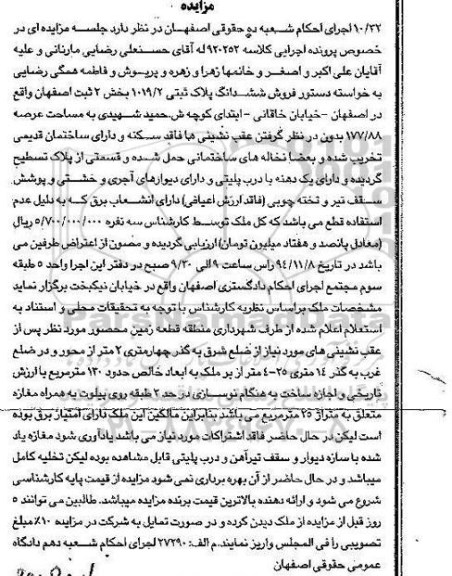 مزایده
۱۰/۳۲ اجرای احکام شعبه ده حقوقی اصفهان در نظر دارد جلسه مزایده ای در
خصوص پرونده اجرایی کلاسه ۹۲۰۲۵۲ له آقای حسنعلی رضایی مارنانی و علیه
آقایان علی اکبر و اصغر و خانمها زهرا و زهره و پریوش و فاطمه همگی رضایی
به خواسته دستور فروش ششدانگ پلاک ثبتی ۱۰۱۹/۲ بخش ۲ ثبت اصفهان واقع
در اصفهان - خیابان خاقانی - ابتدای کوچه ش.حمید شهیدی به مساحت عرصه
۱۷۷/۸۸ بدون در نظر گرفتن عقب نشینی ها فاقد سکنه و دارای ساختمان قدیمی
تخریب شده و بعضا نخاله های ساختمانی حمل شده و قسمتی از پلاک تسطیح
گردیده و دارای یک دهنه با درب پلیتی و دارای دیوارهای آجری و خشتی و پوشش
سقف تیر و تخته چوبی (فاقد ارزش اعیانی) دارای انشعاب برق که به دلیل عدم
استفاده قطع می باشد که کل ملک توسط کارشناس سه نفره ۵/۷۰۰/۰۰۰/۰۰۰ ریال
(معادل پانصد و هفتاد میلیون تومان) ارزیابی گردیده و مصون از اعتراض طرفین می
باشد در تاریخ ۹۴/۱۱/۸ راس ساعت ۹ الی ۹/۳۰ صبح در دفتر این اجرا واحد ۵ طبقه
سوم مجتمع اجرای احکام دادگستری اصفهان واقع در خیابان نیکبخت برگزار نماید
مشخصات ملک براساس نظریه کارشناس با توجه به تحقیقات محلی و استناد به
استعلام اعلام شده از طرف شهرداری منطقه قطعه زمین محصور مورد نظر پس از
عقب نشینی های مورد نیاز از ضلع شرق به گذر چهارمتری ۲ متر از محور و در ضلع
غرب به گذر ۱۴ متری ۲۵-۴ متر از بر ملک به ابعاد خالص حدود ۱۳۰ مترمربع با ارزش
تاریخی و اجازه ساخت به هنگام نوسازی در حد ۲ طبقه روی پیلوت به همراه مغازه
متعلق به متراژ ۲۵ مترمربع می باشد بنابراین مالکین این ملک دارای امتیاز برق بوده
است لیکن در حال حاضر فاقد اشتراکات مورد نیاز می باشد یادآوری شود مغازه یاد
شده با سازه دیوار و سقف تیرآهن و درب پلیتی قابل مشاهده بوده لیکن تخلیه کامل
میباشد و در حال حاضر از آن بهره برداری نمی شود مزایده از قیمت پایه کارشناسی
شروع می شود و ارائه دهنده بالاترین قیمت برنده مزایده میباشد. طالبین می توانند ۵
روز قبل از مزایده از ملک دیدن کرده و در صورت تمایل به شرکت در مزایده ۱۰٪ مبلغ
تصویبی را فی المجلس واریز نمایند. م الف: ۲۷۲۹۰ اجرای احکام شعبه دهم دادگاه
عمومی حقوقی اصفهان